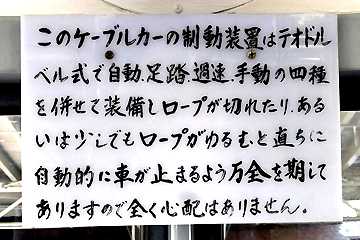 このケーブルカーの制動装置はテオドル
ベル式で自動.足踏.過速.手動の四種
を併せて装備しロープが切れたり.ある
いは少しでもロープがゆるむと直ちに
自動的に車が止まるよう万全を期して
ありますので全く心配はありません。